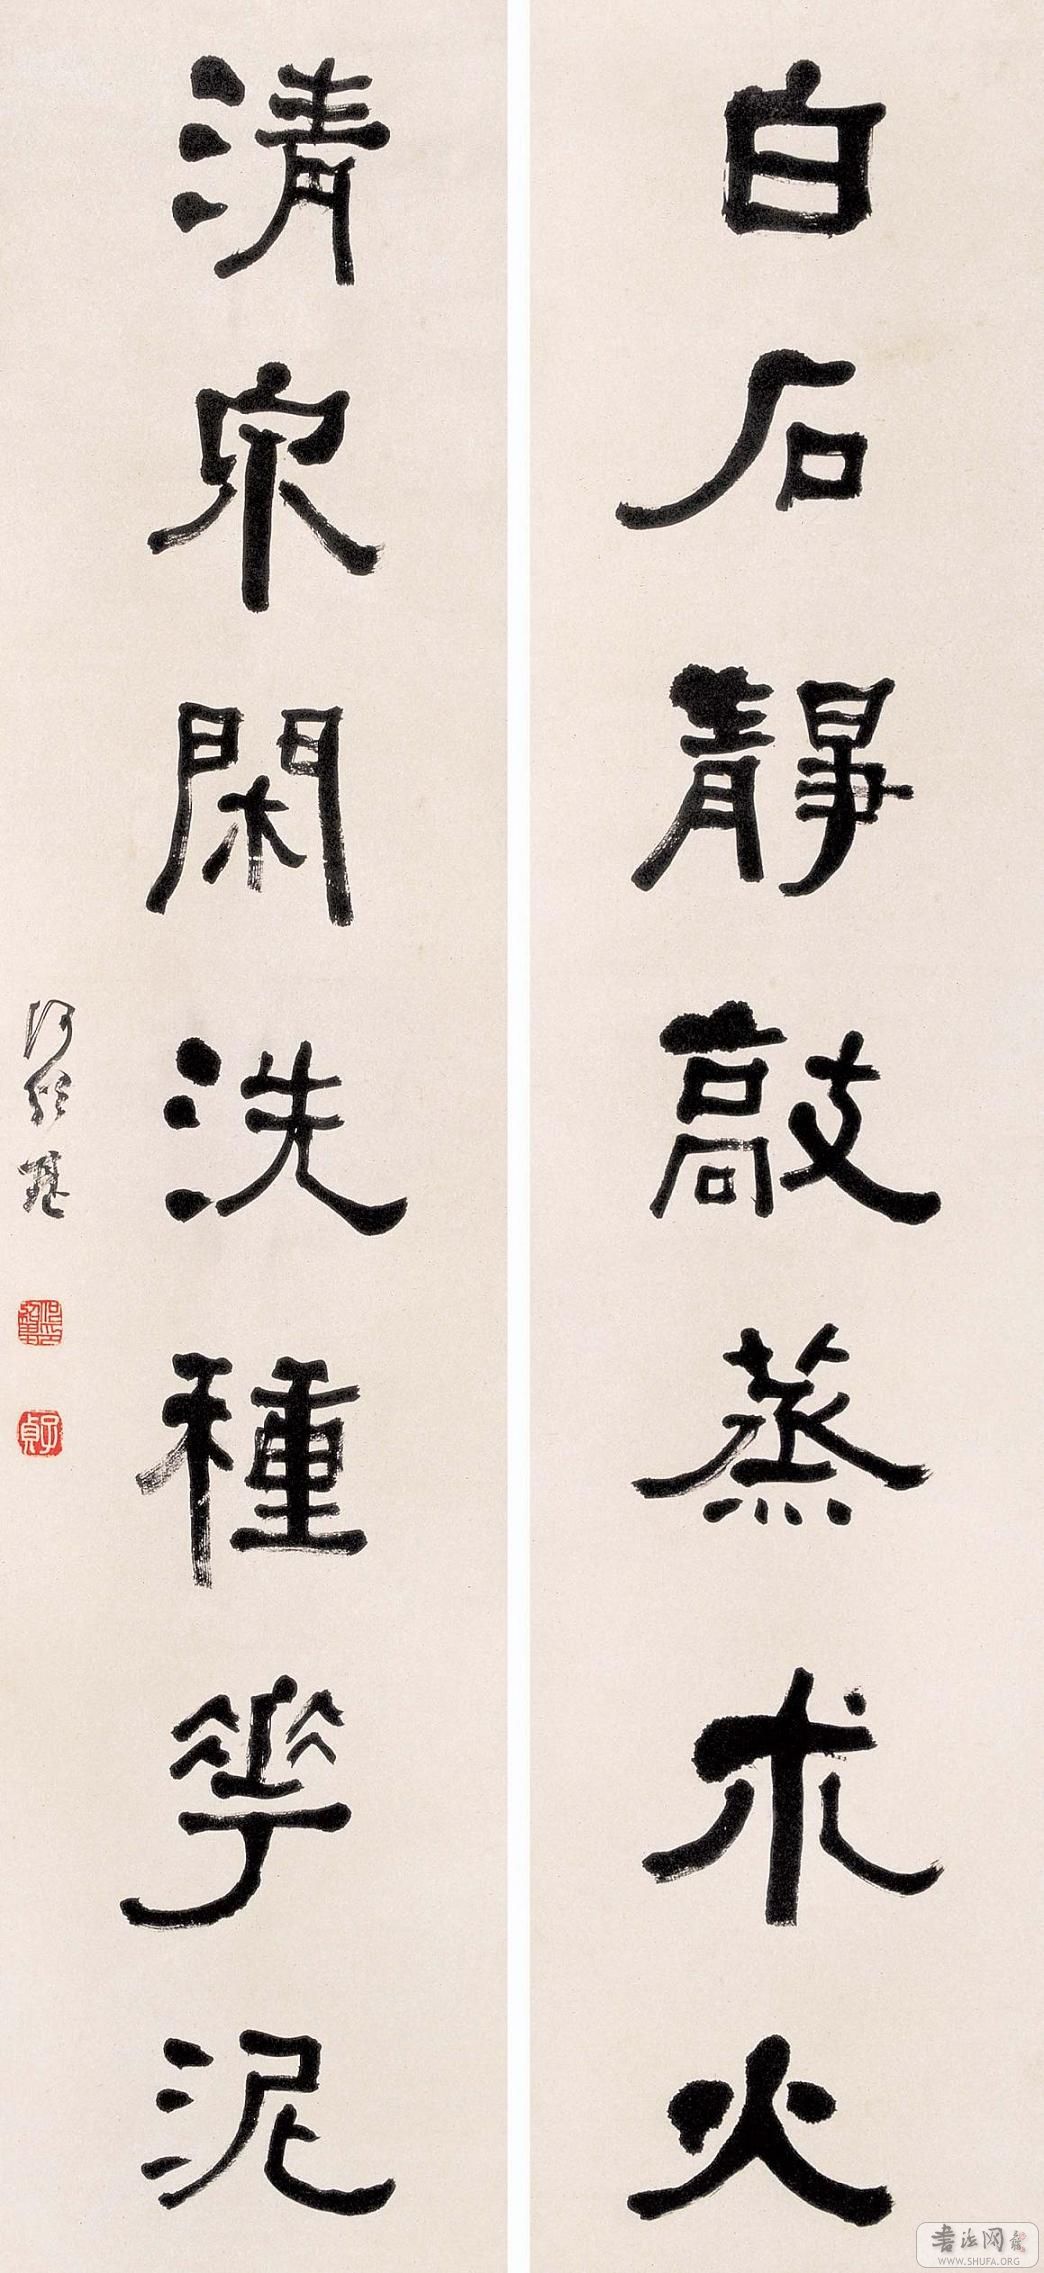 白石静敲蒸术火
清泉閑洗種花泥
何紹基
子貞
書法网
WWW.SHUFA.ORG